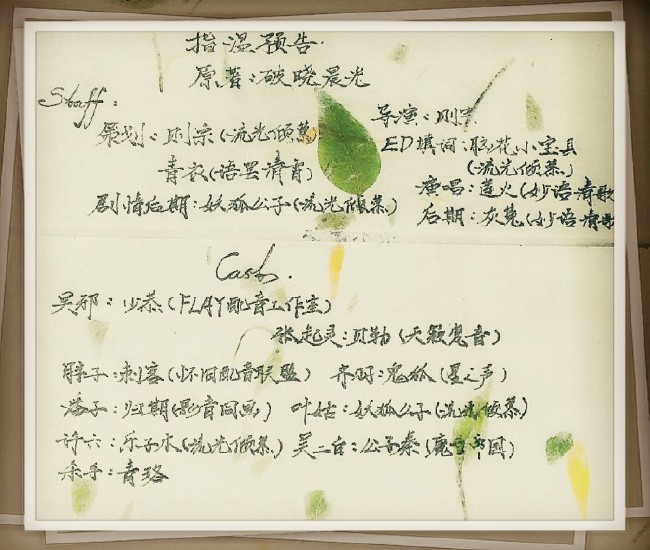 指温预告
原著：破晓晨光
Staff：
导演：则宗
策划：则宗（流光倾慕）
ED填词：胭花小宝县
（流光倾慕）
青衣（语罢清宵）
演唱：莲火（妙语清歌
剧情后期：妖狐公子（流光倾慕）
后期：灰兔（妙语清歌
Cast.
吴邪：少恭（FLAY配音工作室）
张起灵：贝勒（天籁惑音）
胖子：刺客（怀旧配音联盟） 齐羽：鬼狐（星之声）
潘子：归期（影音同画） 叶姑：妖狐公子（流光倾慕）
许六：乐子水（流光倾慕） 吴二白：公子秦（
杀手：青珞